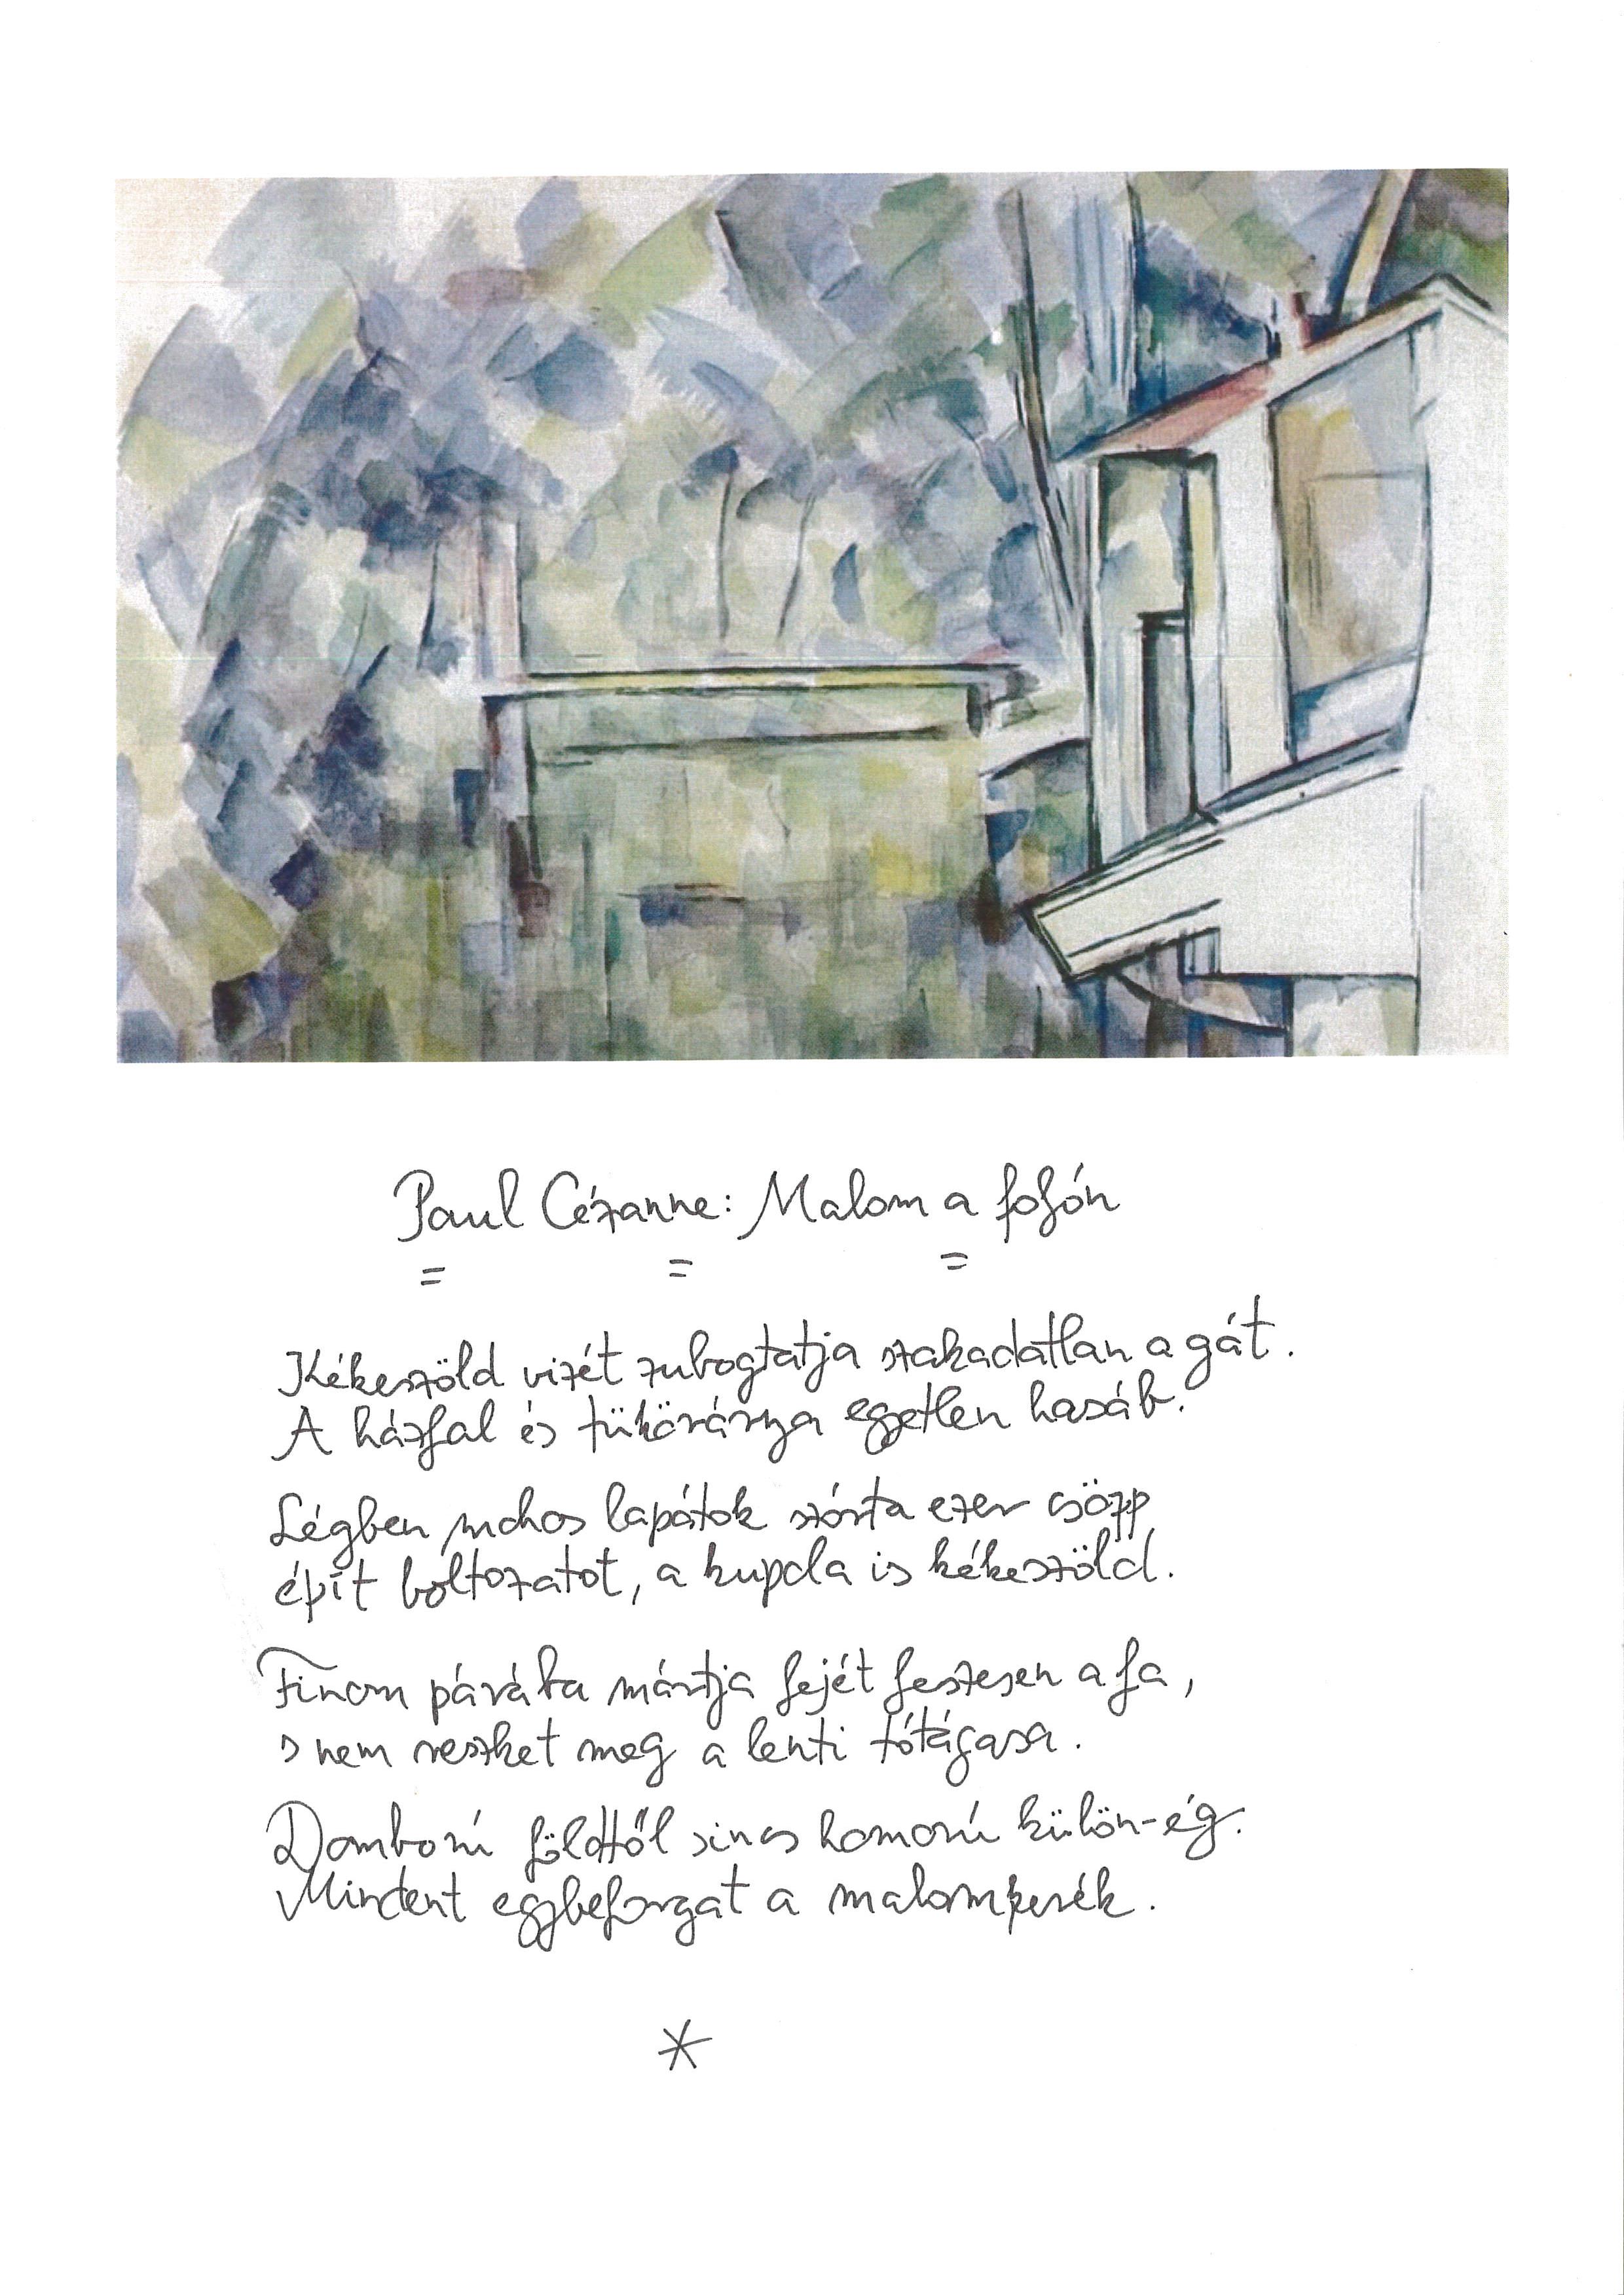 Paul Cézanne: Malom a folyón
= = =
Kékeszöld vizét zubogtatja szakadatlan a gát.
A házfal és tükörárnya egyetlen hasáb.
Légben mohos lapátok szórta ezer csöpp
épít boltozatot, a kupola is kékeszöld.
Finom párába mártja fejét feszesen a fa,
s nem reszket meg a lenti tótágasa.
Domború földtől sincs homorú külön-ég.
Mindent egybeforgat a malomkerék.
*